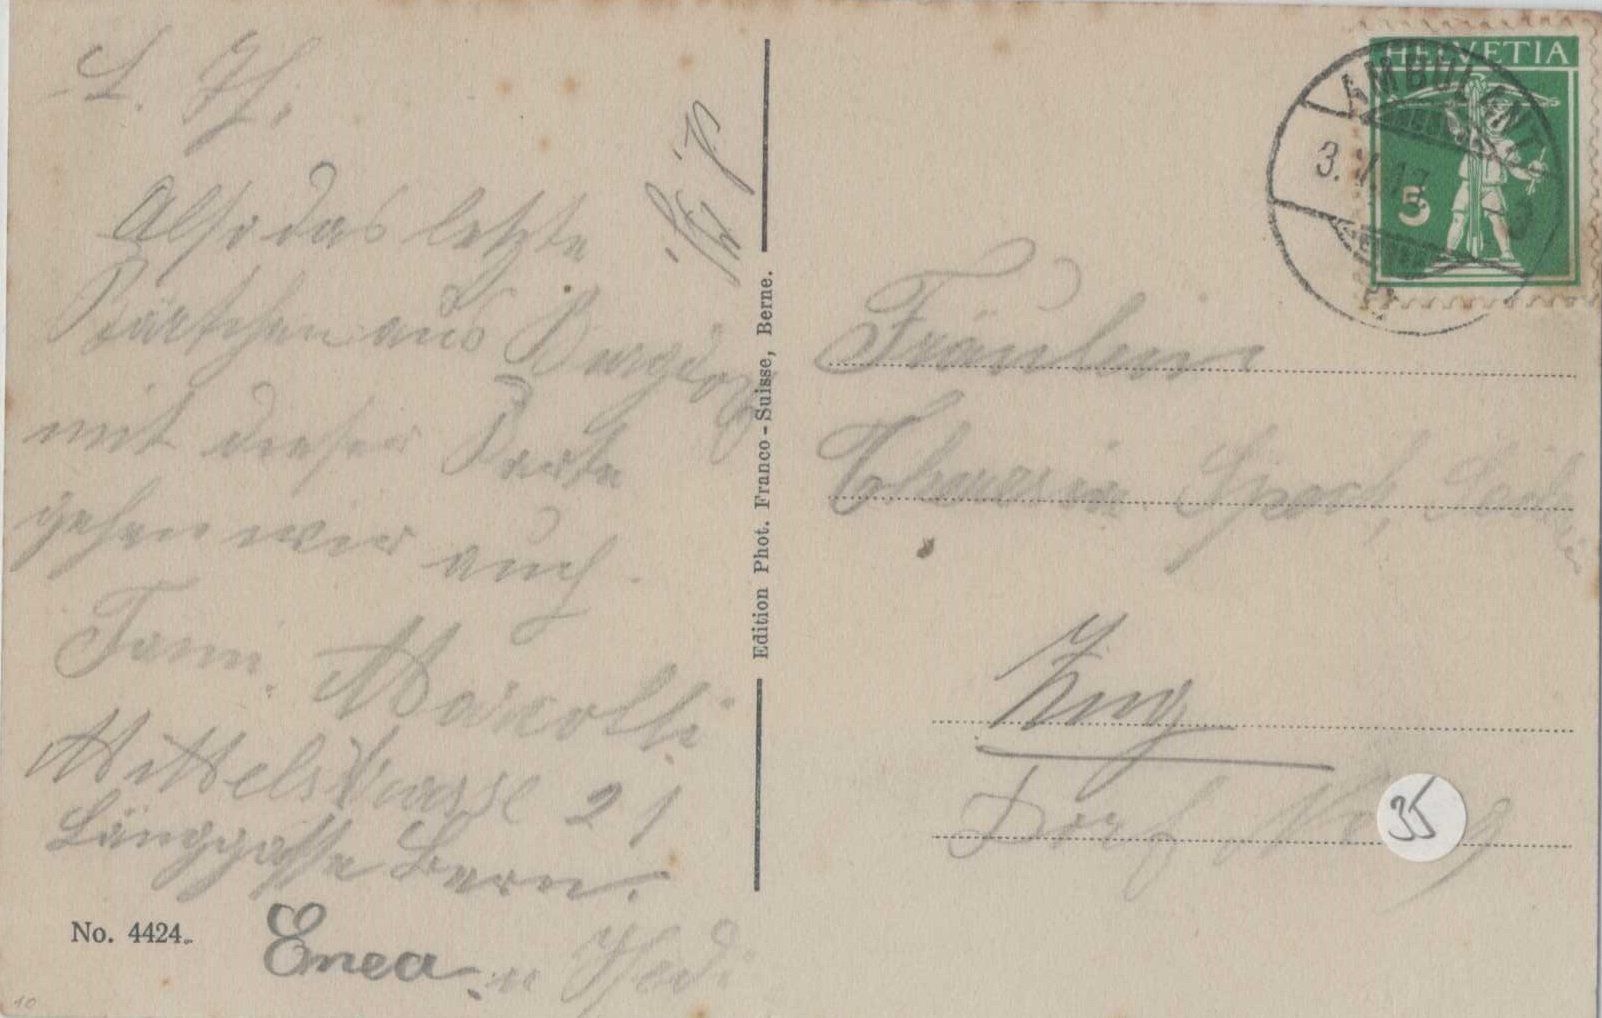 L. H.
Also das letzte
Kärtchen aus Burgdorf
mit dieser Karte
gehen wir auch.
Fam. Marcolli
Mittelstrasse 21
Länggasse Bern.
Enea u Hedi
No. 4424.
Edition Phot. Franco-Suisse, Berne.
HELVETIA
5
AMBULANT
3. V. 17
Fräulein
Speck,
Zug
Dorf No 9
35
10